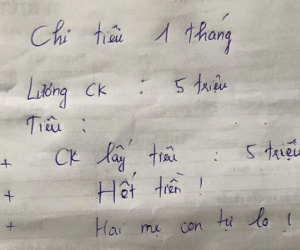 Chi tiêu 1 tháng
Lương CK : 5 triệu
Tiêu :
+ CK lấy tiêu : 5 triệu
+ Hết tiền !
+ Hai mẹ con tự lo !